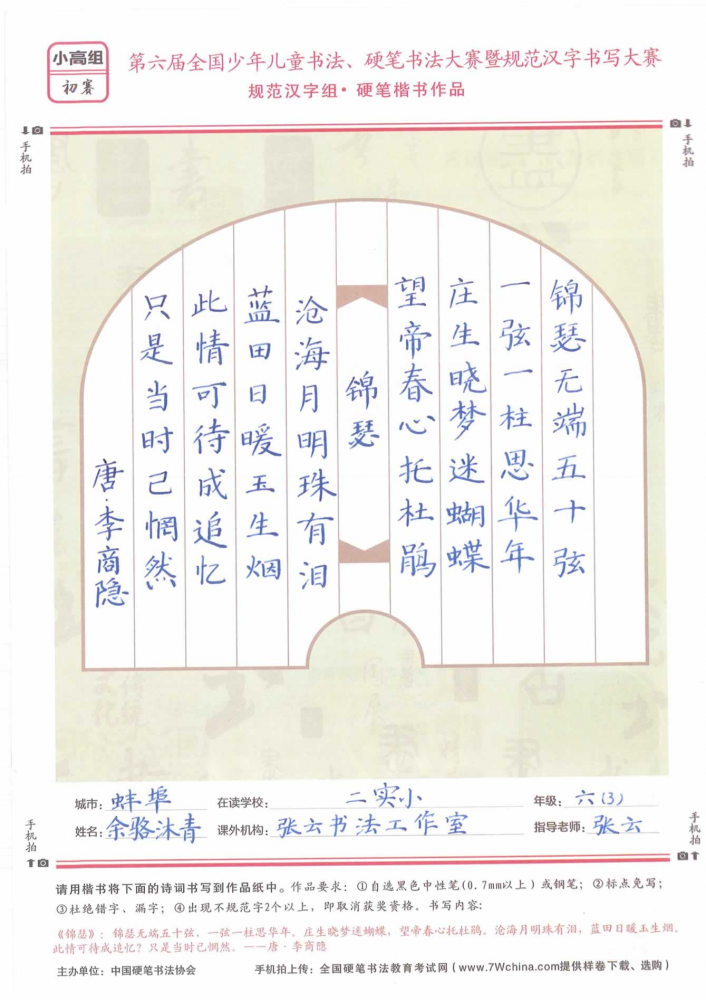 小高组
初赛
第六届全国少年儿童书法、硬笔书法大赛暨规范汉字书写大赛
规范汉字组·硬笔楷书作品
手机拍
手机拍
锦瑟无端五十弦
一弦一柱思华年
庄生晓梦迷蝴蝶
望帝春心托杜鹃
锦瑟
沧海月明珠有泪
蓝田日暖玉生烟
此情可待成追忆
只是当时已惘然
唐·李商隐
城市：蚌埠 在读学校：二实小 年级：六（3）
姓名：余骆沐青 课外机构：张云书法工作室 指导老师：张云
手机拍
手机拍
请用楷书将下面的诗词书写到作品纸中。作品要求：①自选黑色中性笔(0.7mm以上）或钢笔；②标点免写；
③杜绝错字、漏字；④出现不规范字2个以上，即取消获奖资格。书写内容：
《锦瑟》：锦瑟无端五十弦，一弦一柱思华年。庄生晓梦迷蝴蝶，望帝春心托杜鹃。沧海月明珠有泪，蓝田日暖玉生烟。
此情可待成追忆？只是当时已惘然。——唐·李商隐
主办单位：中国硬笔书法协会 手机拍上传：全国硬笔书法教育考试网（www.7Wchina.com提供样卷下载、选购）